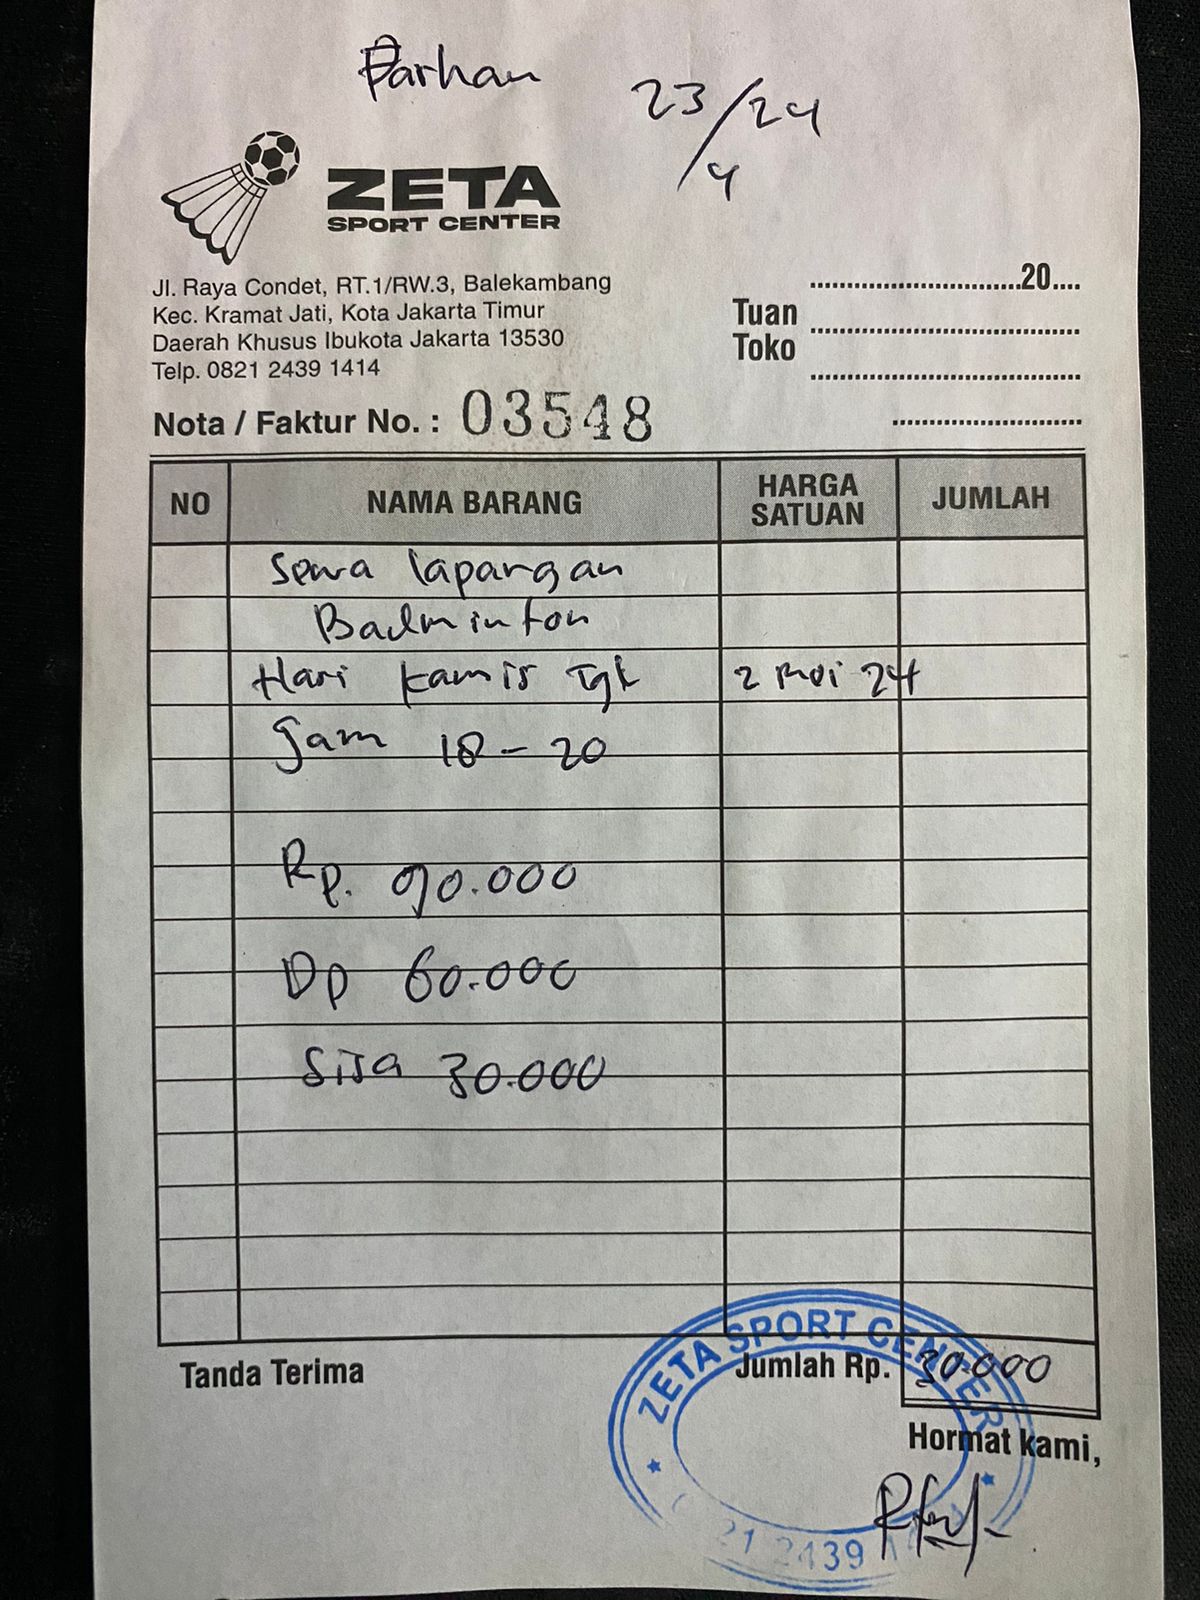 Farhan
23/4/24
ZETA
SPORT CENTER
Jl. Raya Condet, RT.1/RW.3, Balekambang
Kec. Kramat Jati, Kota Jakarta Timur
Daerah Khusus Ibukota Jakarta 13530
Telp. 0821 2439 1414
............................20....
Tuan
Toko
Nota / Faktur No. : 03548
NO NAMA BARANG HARGA SATUAN JUMLAH
Sewa lapangan
Badminton
Hari kamis Tgl 2 mei 24
Jam 18 - 20
Rp. 90.000
Dp 60.000
Sisa 30.000
Tanda Terima
Jumlah Rp. 30.000
Hormat kami,
ZETA SPORT CENTER
21 2439